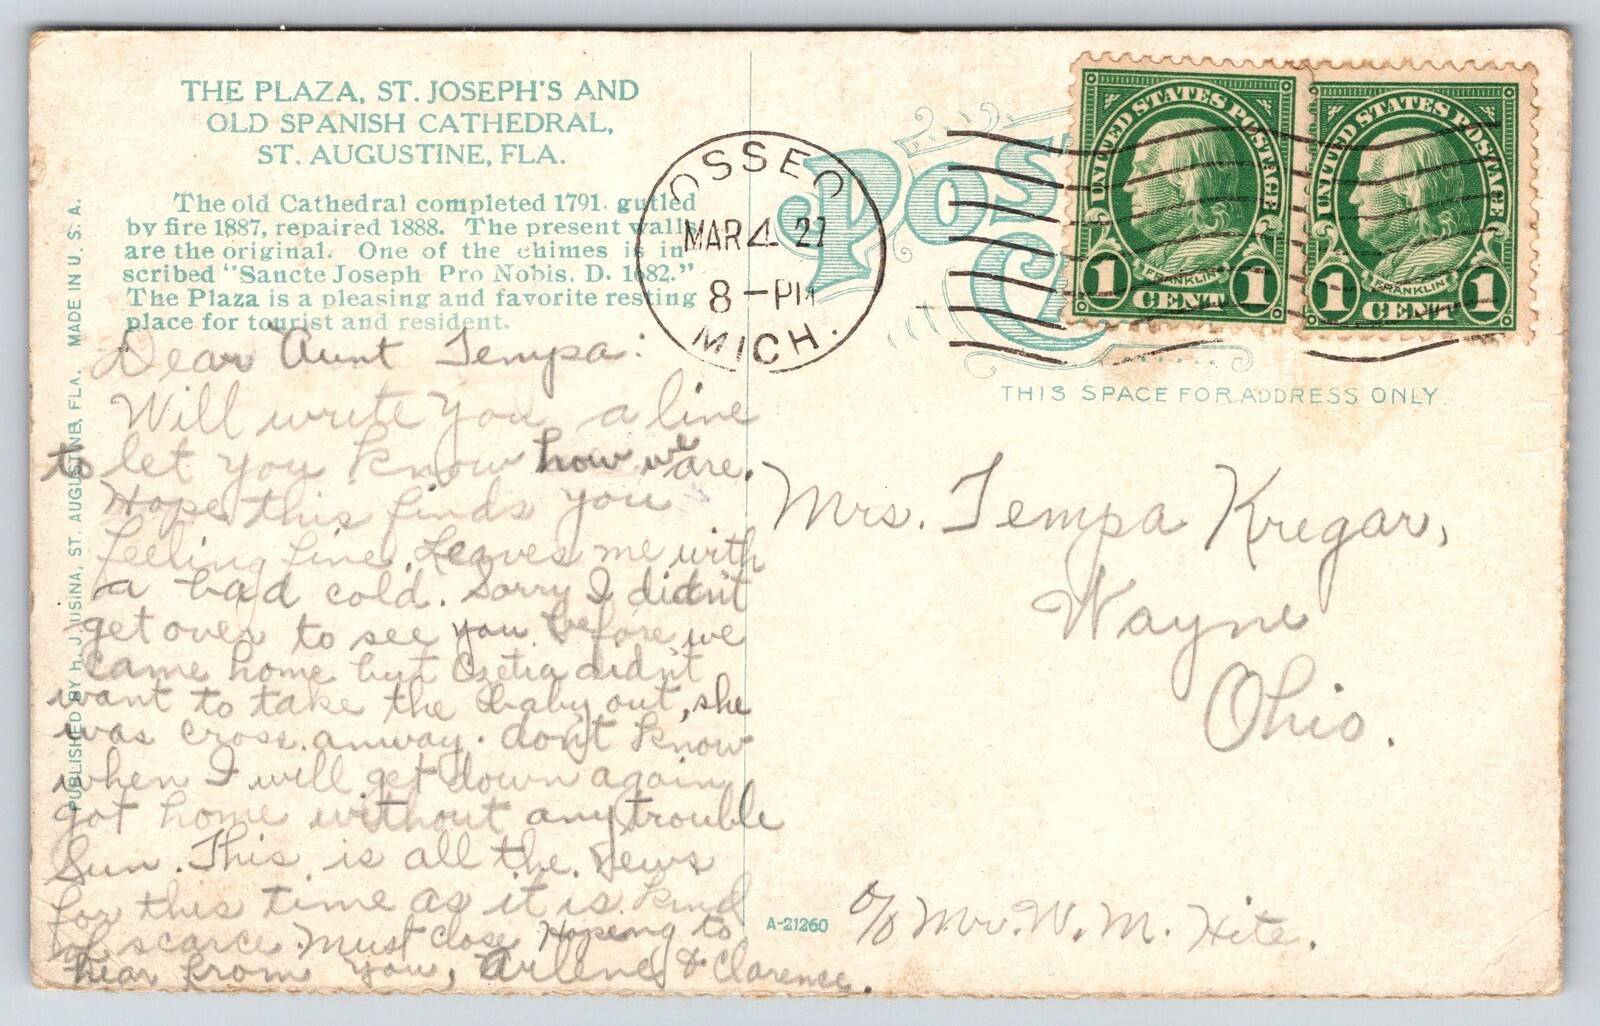 THE PLAZA, ST. JOSEPH'S AND
OLD SPANISH CATHEDRAL,
ST. AUGUSTINE, FLA.
The old Cathedral completed 1791. gutled
by fire 1887, repaired 1888. The present walls
are the original. One of the chimes is in-
scribed "Sancte Joseph Pro Nobis. D. 1682."
The Plaza is a pleasing and favorite resting
place for tourist and resident.
PUBLISHED BY H. J. USINA, ST. AUGUSTINE, FLA. MADE IN U. S. A.
Dear Aunt Tempa:
Will write you a line
to let you know how we are.
Hope this finds you
feeling fine. Leaves me with
a bad cold. Sorry I didn't
get over to see you before we
came home but didn't
want to take the baby out, she
was cross anway. don't know
when I will get down again
got home without any trouble
Sun. This is all the news
for this time as it is kind
of scarce. Must close Hopeing to
hear from you, Arlene & Clarence.
OSSEO
MAR 4 27
8-PM
MICH.
POST
UNITED STATES POSTAGE
FRANKLIN
1 CENT 1
UNITED STATES POSTAGE
FRANKLIN
1 CENT 1
THIS SPACE FOR ADDRESS ONLY.
Mrs. Tempa Kregar,
Wayne
Ohio.
A-21260
c/o Mr. W. M. Hite.